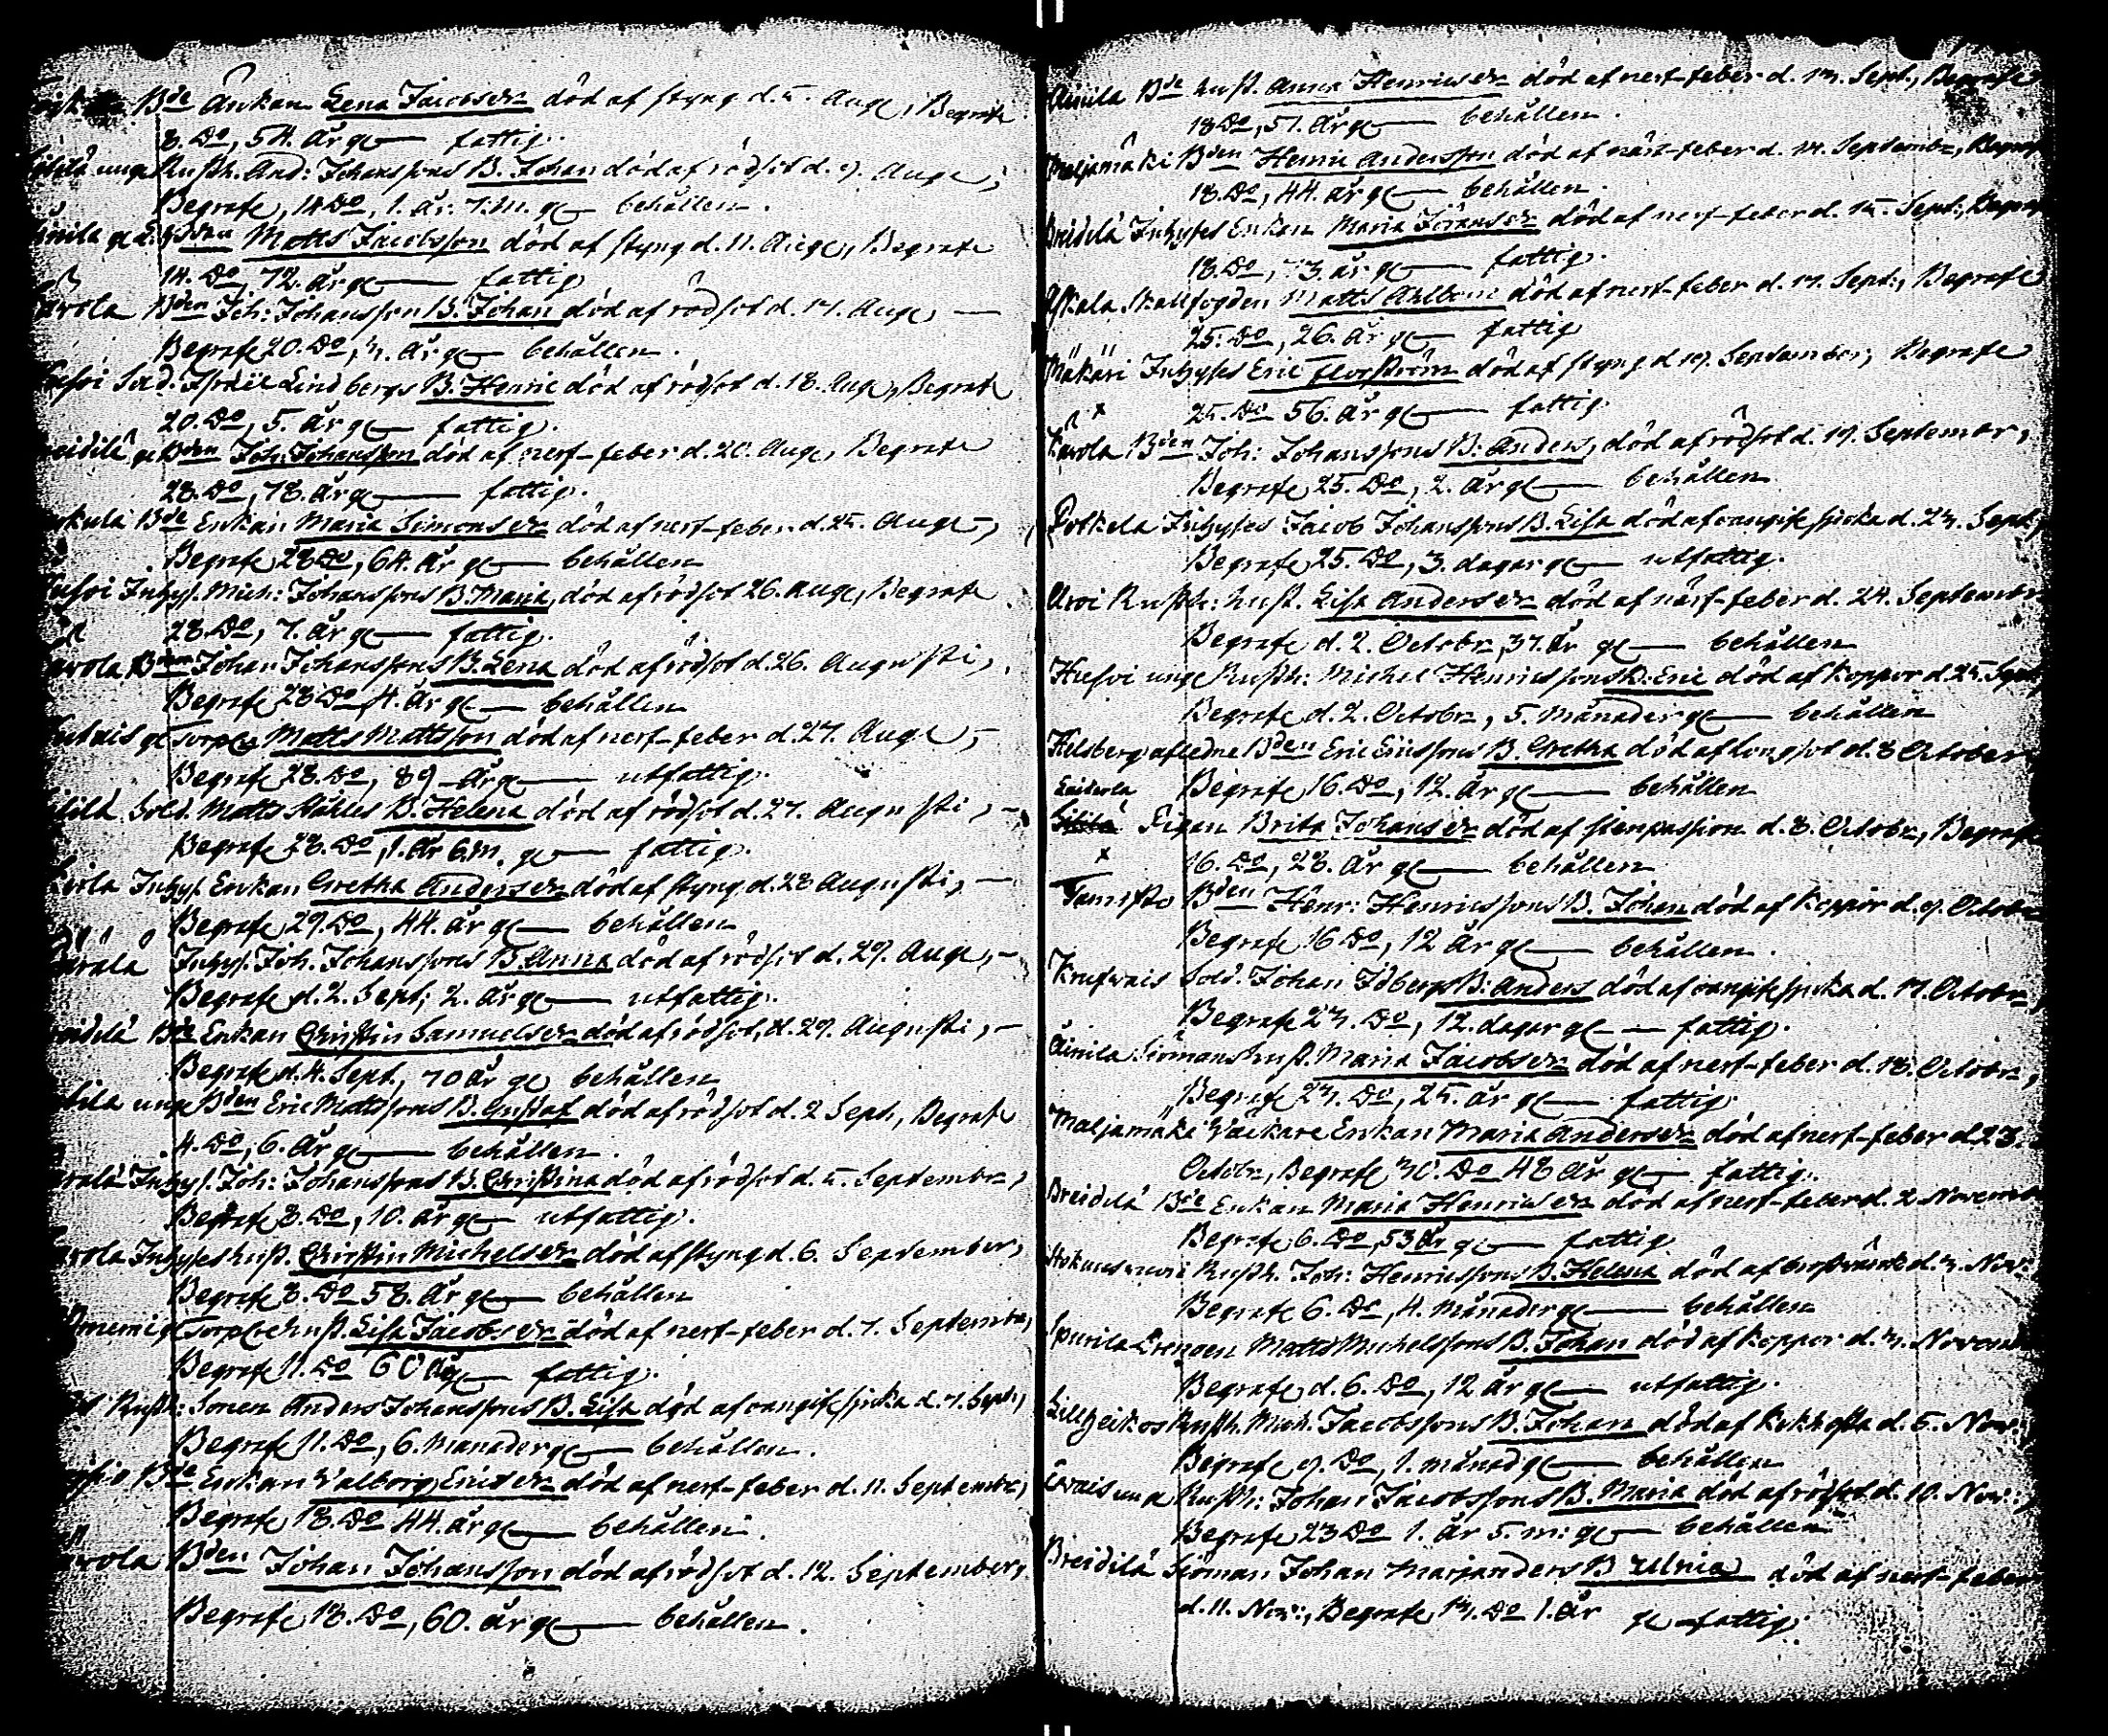 Bde Änkan Lena Jacobsdr död af styng d. 5. Aug:, Begrafs
8. Do, 54. år gl— fattig.
unga Rusth. And: Johanssons B. Johan död af rödsot d. 9. Aug:,
Begrafs, 14 Do, 1. år. 7. m. gl— behållen.
gl. Bden Matts Jacobsson död af styng d. 11. Aug:, Begrafs
14. Do, 72. år gl— fattig
Bden Joh: Johansson B. Johan död af rödsot d. 17. Aug: —
Begrafs 20. Do, 3. år gl— behållen.
Sold. Israel Lindbergs B. Henric död af rödsot d. 18. Aug:, Begrafs
20. Do, 5. år gl— fattig.
gl. Bden Joh: Johansson död af nerf-feber d. 20. Aug:, Begrafs
28. Do, 78. år gl— fattig.
Bde Enkan Maria Simonsdr död af nerf-feber d. 25. Aug:,
Begrafs 28 Do, 64. år gl— behållen
Inhys. Mich: Johanssons B. Maria, död af rödsot 26. Aug:, Begrafs
28. Do, 7. år gl— fattig.
Bden Johan Johanssons B. Lena död af rödsot d. 26. Augusti,
Begrafs 28 Do, 4. år gl— behållen
gl. Torp. Matts Mattsson död af nerf-feber d. 27. Aug:,
Begrafs 28. Do, 89 år gl— utfattig.
Sold. Matts Ståhles B. Helena död af rödsot d. 27. Augusti, —
Begrafs 28. Do, 1. år 6. m. gl— fattig.
Inhys Enkan Gretha Andersdr död af styng d. 28 Augusti, —
Begrafs 29. Do, 44. år gl— behållen
Inhys. Joh. Johanssons B. Anna död af rödsot d. 29. Aug:, —
Begrafs d. 2. Sept; 2. år gl— utfattig.
Bde Enkan Christin Samuelsdr död af rödsot, d. 29. Augusti, —
Begrafs d. 4. Sept., 70 år gl behållen
unga Bden Eric Mattssons B. Gustaf död af rödsot d. 2 Sept., Begrafs
4. Do, 6. år gl— behållen.
Inhys. Joh: Johanssons B. Christina död af rödsot d. 5. Septembr,
Begrafs 8. Do, 10. år gl— utfattig.
Inhyses hust. Christin Michelsdr död af styng d. 6. September,
Begrafs 8. Do 58. år gl— behållen
gl. Torp hust. Lisa Jacobsdr död af nerf-feber d. 7. Septembr,
Begrafs 11. Do 60 år gl— fattig.
Rusth: Sonen Anders Johanssons B. Lisa död af oangifs siuka d. 7. Sept:,
Begrafs 11. Do, 6. månader gl— behållen.
Bde Enkan Walborg Ericsdr död af nerf-feber d. 11. Septembr,
Begrafs 18. Do 44. år gl— behållen.
Bden Johan Johansson död af rödsot d. 12. September,
Begrafs 18. Do, 60. år gl— behållen.
Äinilä Bde hust. Anna Henricsdr död af nerf-feber d. 13. Sept:, Begrafs
18 Do, 51. år gl— behållen.
Maljamäki Bden Henric Andersson död af närf-feber d. 14. Septembr, Begrafs
18. Do, 44. år gl— behållen.
Breidilä Inhyses Enkan Maria Jöransdr död af nerf-feber d. 15. Sept:, Begrafs
18. Do, 73. år gl— fattig.
Skallfogden Matts Ahlbom död af nerf-feber d. 17. Sept:, Begrafs
25. Do, 26. år gl— fattig
Mäkäri Inhyses Eric Florström död af styng d. 19. September, Begrafs
25. Do 56. år gl— fattig
Karola Bden Joh: Johanssons B. Anders, död af rödsot d. 19. September,
Begrafs 25. Do, 2. år gl— behållen.
Potkela Inhyses Jacob Johanssons B. Lisa död af oangifs siuka d. 23. Sept,
Begrafs 25. Do, 3. dagar gl— utfattig.
Arvi Rusth: hust. Lisa Andersdr död af närf-feber d. 24. Septembr
Begrafs d. 2. Octobr, 37. år gl— behållen
unge Rusth: Michel Henricssons B. Eric död af koppor d. 25. Sept
Begrafs d. 2. Octobr, 5. månader gl— behållen
Hilsberg afledne Bden Eric Ericssons B. Gretha död af lungsot d. 8 October
Begrafs 16. Do, 12. år gl— behållen
Pigan Brita Johansdr död af stenpassion d. 8. Octobr, Begrafs
16. Do, 28. år gl— behållen
Tamisto Bden Henr: Henricssons B. Johan död af koppor d. 9. Octobr
Begrafs 16 Do, 12 år gl— behållen.
Krufvais Sold. Johan Idbergs B. Anders död af oangifs siuka d. 17. Octobr,
Begrafs 23. Do, 12. dagar gl— fattig.
Äinilä Siömans hust. Maria Jacobsdr död af nerf-feber d. 18. Octobr,
Begrafs 23. Do, 25. år gl— fattig.
Maljamäki Enkan Maria Andersdr död af nerf-feber d. 23.
Octobr, Begrafs 30. Do 48 år gl— fattig.
Breidilä Bde Enkan Maria Henricsdr död af nerf-feber d. 2 Novembr
Begrafs 6. Do, 53 år gl— fattig
Rusth. Joh: Henricssons B. Helena död af bröstvärk d. 3. Nov:
Begrafs 6. Do, 4. månader gl— behållen
Spurila Drengen Matts Michelssons B. Johan död af koppor d. 3. Novemb
Begrafs d. 6. Do, 12 år gl— utfattig.
Rusth. Mich. Jacobssons B. Johan död af kikhosta d. 5. Nov:
Begrafs 9. Do, 1. månad gl— behållen
unga Rusth: Johan Jacobssons B. Maria död af rödsot d. 10. Nov:,
Begrafs 23 Do 1. år 5. m: gl— behållen
Breidilä Siöman Johan Marjanders B Ulrica död af nerf-feber
d. 11. Nov:, Begrafs 13. Do 1. år gl— fattig.